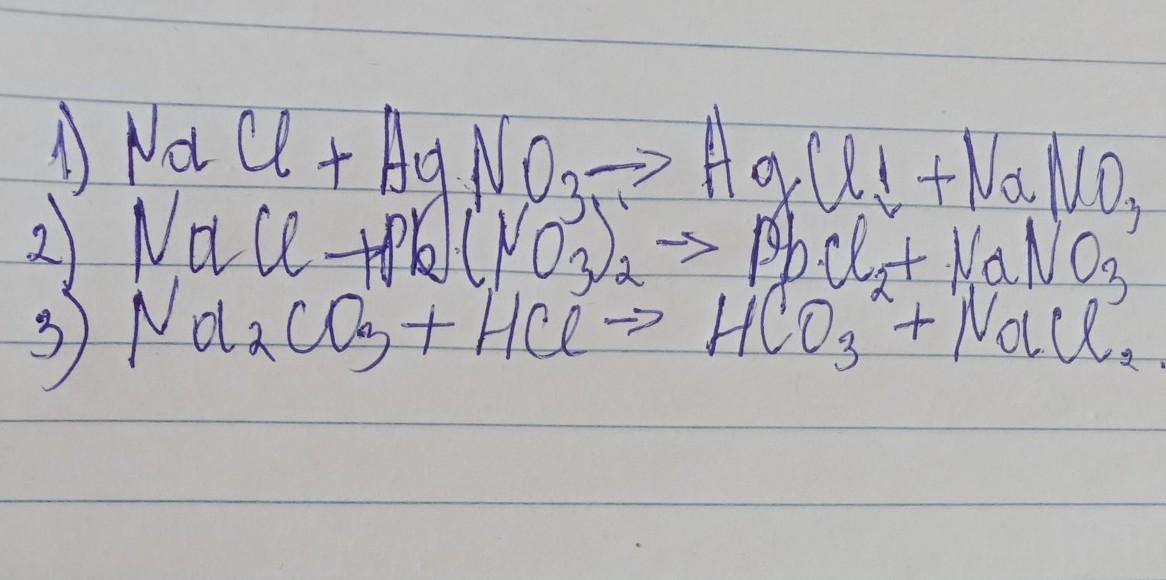 1) NaCl + AgNO₃ → AgCl↓ + NaNO₃
2) NaCl + Pb(NO₃)₂ → PbCl₂ + NaNO₃
3) Na₂CO₃ + HCl → HCO₃ + NaCl₂.